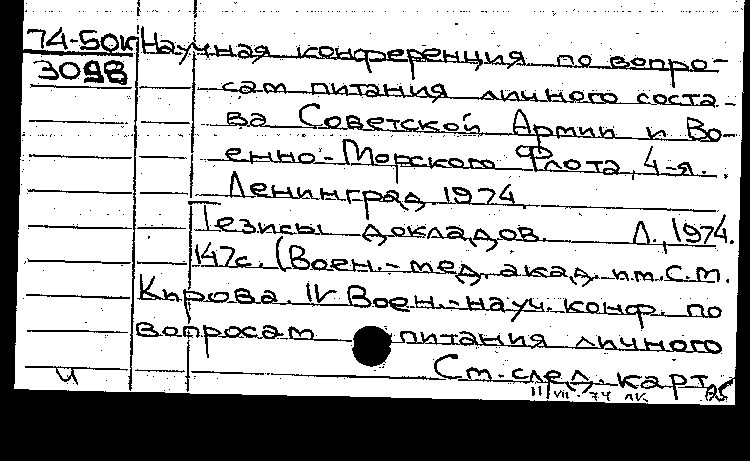 74-50к Научная конференция по вопро-
3098 сам питания личного соста-
ва Советской Армии и Во-
енно-Морского Флота, 4-я.
Ленинград, 1974.
Тезисы докладов. Л., 1974.
147с. (Воен.-мед. акад. им. С.М.
Кирова. IV Воен.-науч. конф. по
вопросам питания личного
См. след. карт.
И
11/VII-74 ЛК